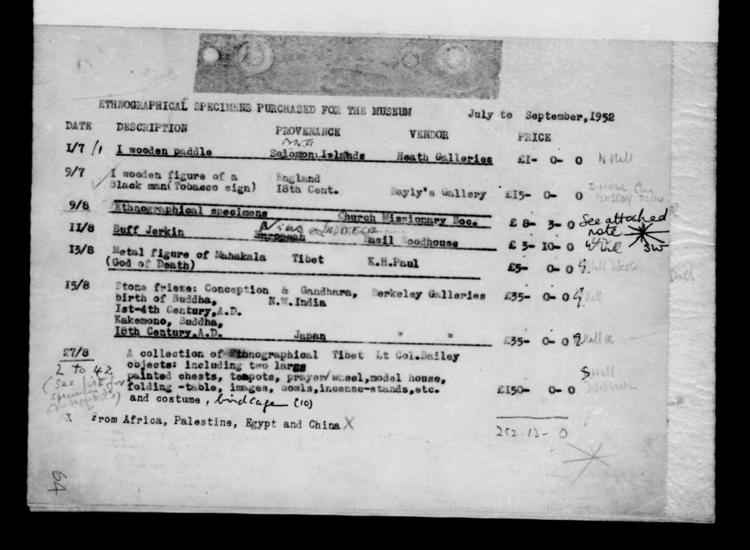 ETHNOGRAPHICAL SPECIMENS PURCHASED FOR THE MUSEUM July to September, 1952
DATE DESCRIPTION PROVENANCE VENDOR PRICE
1/7 /1 I wooden paddle Solomon Islands Heath Galleries £1- 0- 0 N Hall
9/7 I wooden figure of a England
Black man(Tobacco sign) 18th Cent. Bayly's Gallery £15- 0- 0
9/8 Ethnographical specimens Church Missionary Soc. £ 8- 3- 0 See attached note
11/8 Buff Jerkin European Basil Woodhouse £ 3- 10- 0 SW
Nias
13/8 Metal figure of Mahakala Tibet K.H.Paul £5- 0- 0
(God of Death)
15/8 Stone frieze: Conception & Gandhara, Berkeley Galleries £35- 0- 0
birth of Buddha, N.W.India
1st-4th Century,A.D.
Kakemono, Buddha,
18th Century,A.D. Japan " " £35- 0- 0
27/8 A collection of Ethnographical Tibet Lt Col.Bailey
2 to 42 objects: including two large
(see list for painted chests, teapots, prayer wheel,model house, S Hall
folding -table, images, bowls,incense-stands,etc. £150- 0- 0
and costume, birdcage (10)
X From Africa, Palestine, Egypt and China X
252-13- 0
64